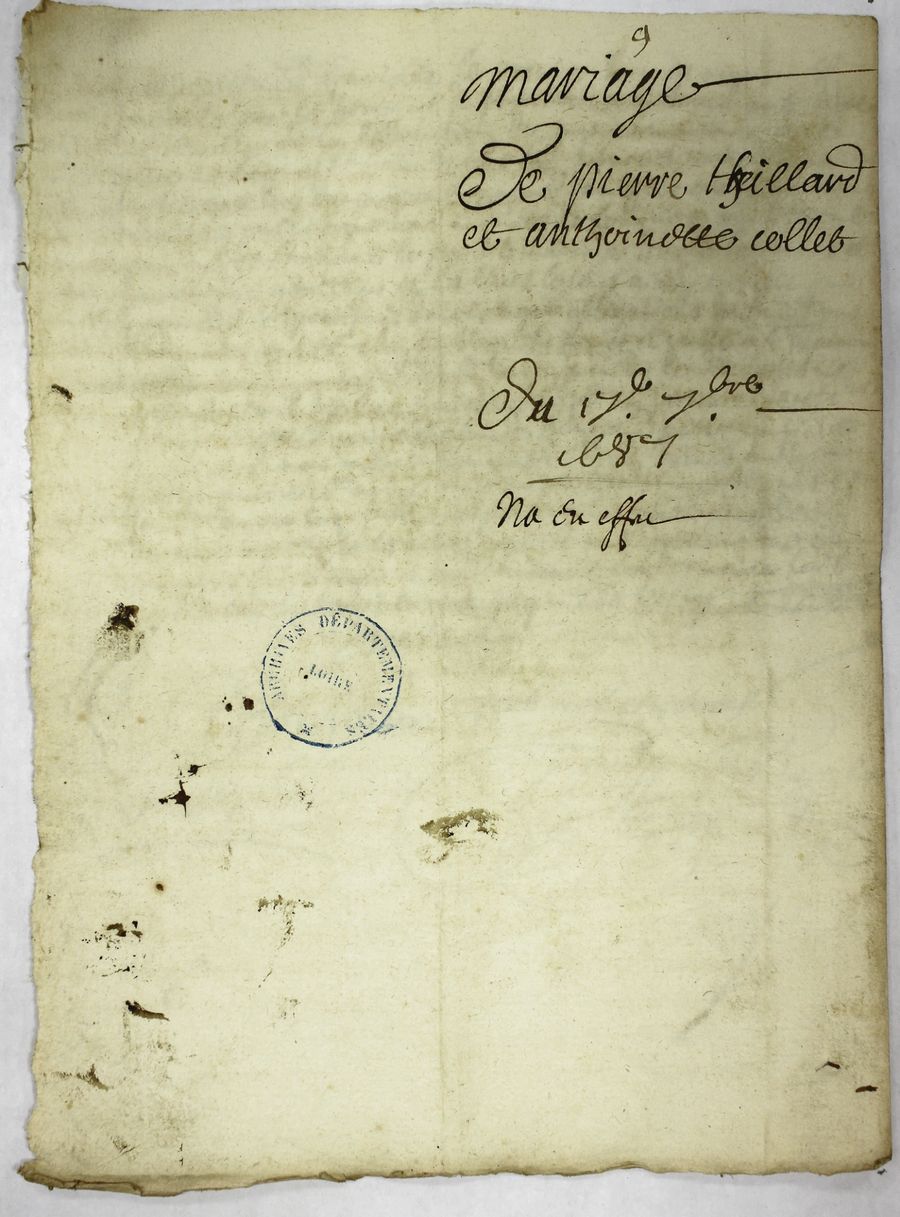 mariage
De pierre theillard
et anthoinette collet
Du 17e. 7bre
1687
No en effu
ARCHIVES DÉPARTEMENTALES
LOIRE